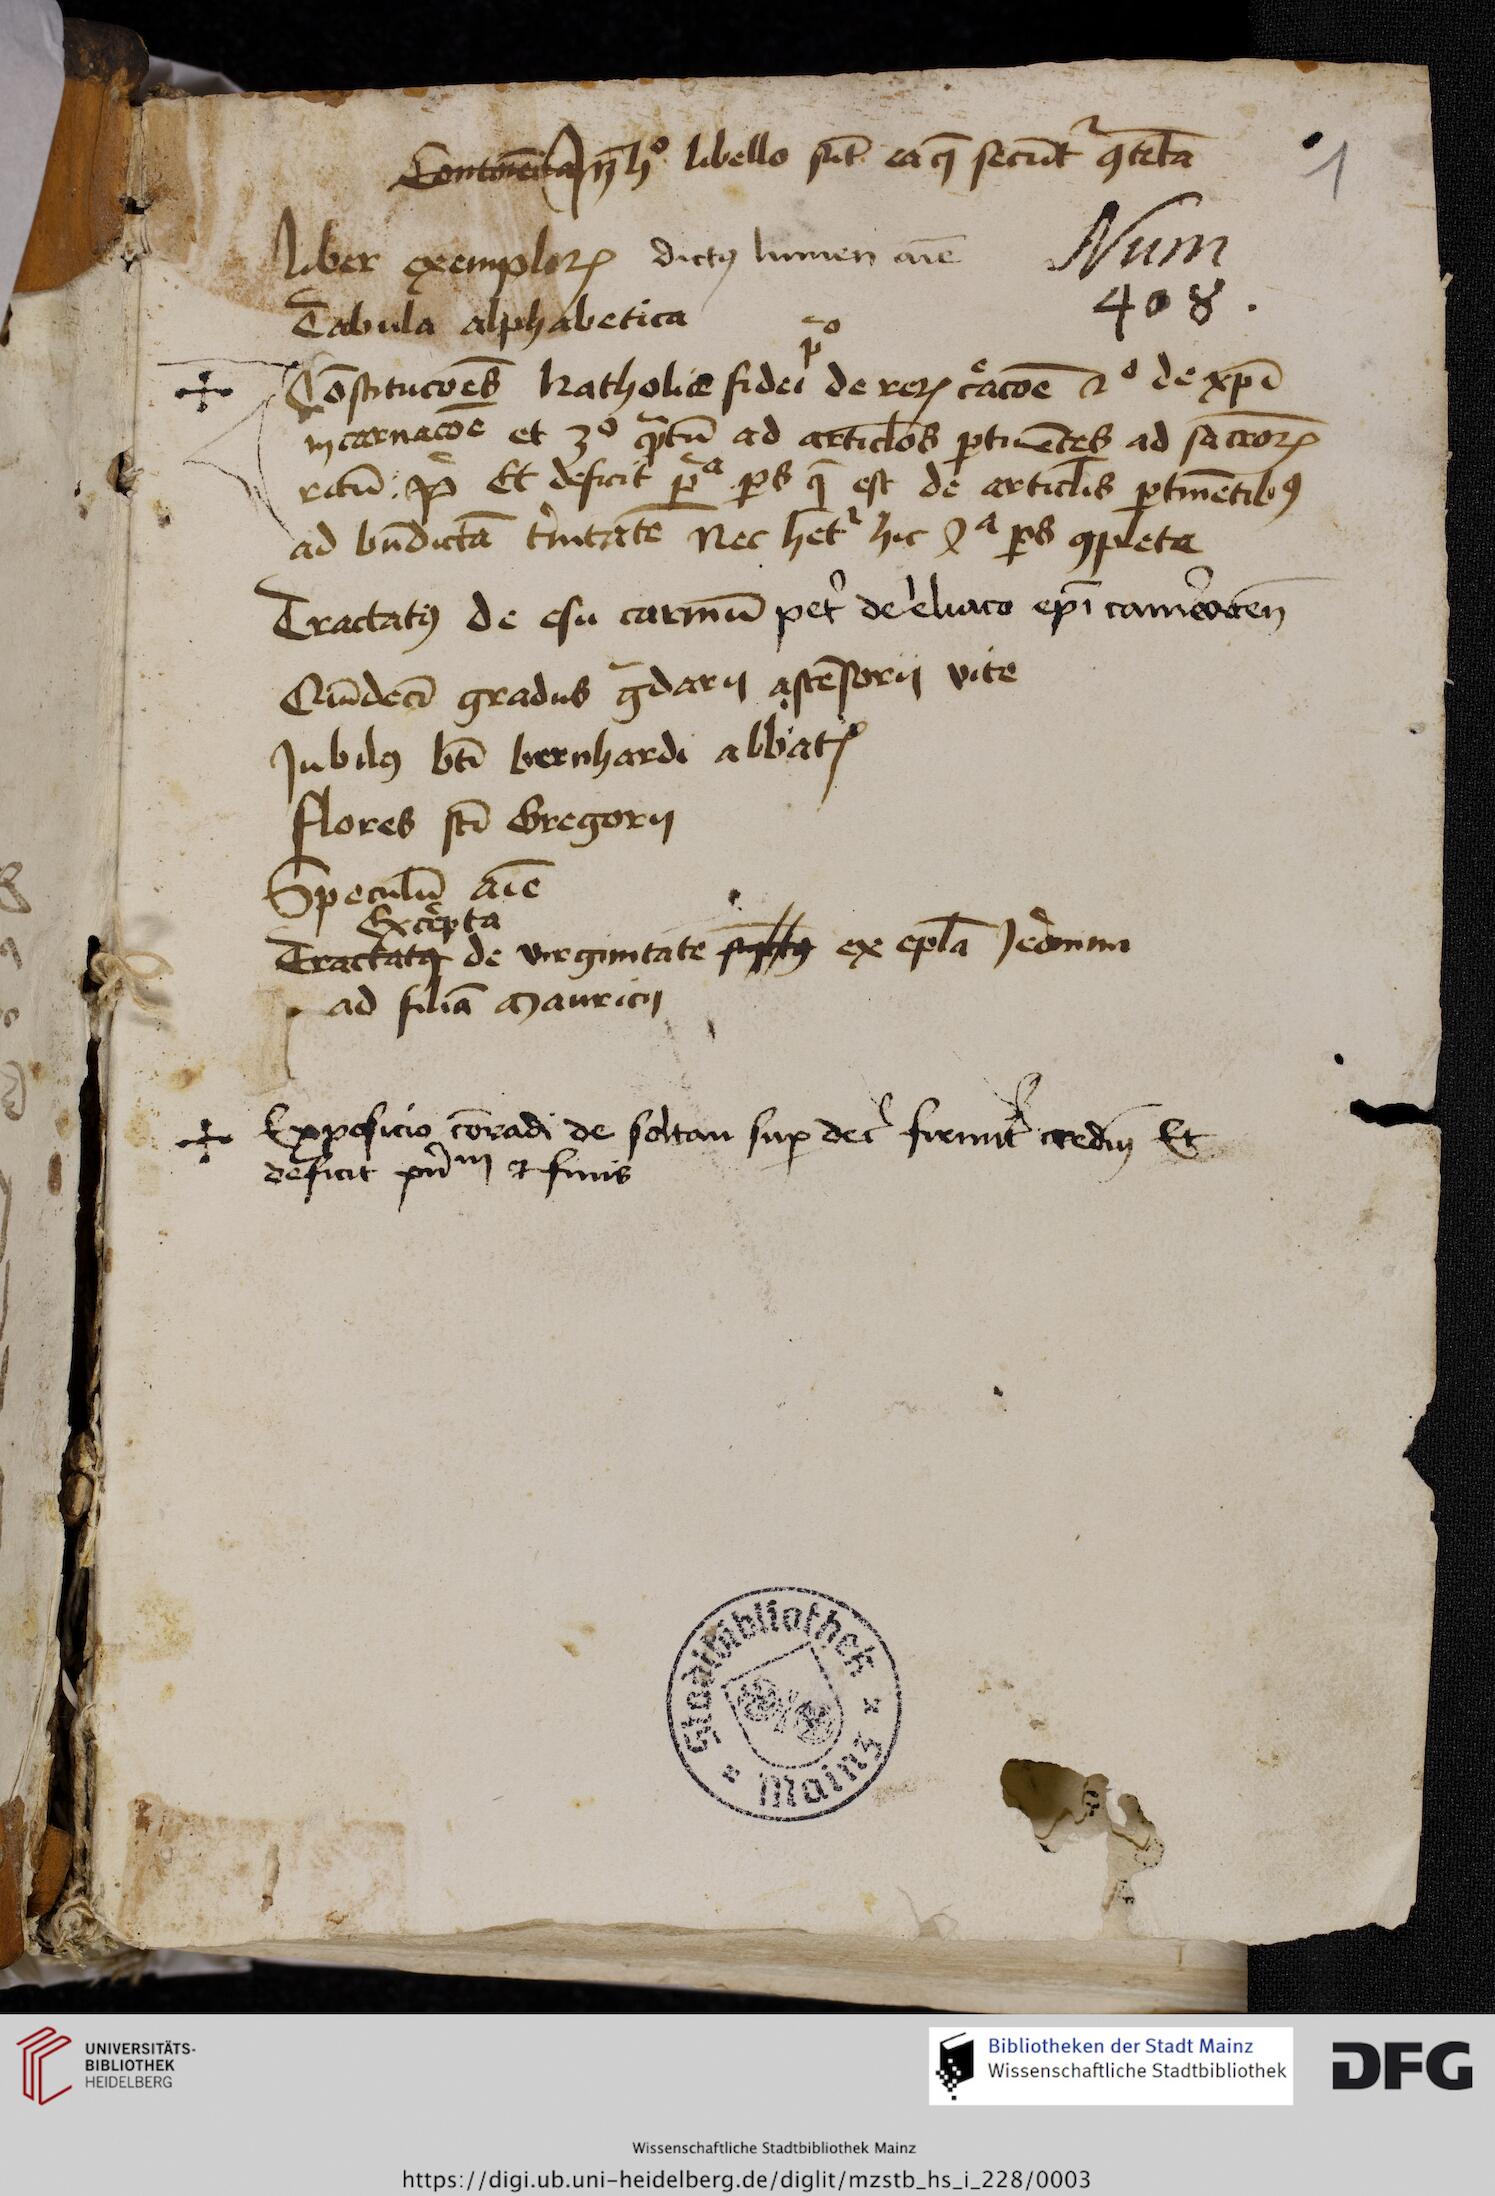 Contine̅ta In̅ hº libello su̅t ea q̅ secu̅nt᷑ ꝯte̅ta
1
Liber exemploꝝ dictꝰ lumen ai̅e
Num
408.
Tabula alphabetica
p̅º
Co̅stituco̅es katholice fidei de reꝝ c̅aco̅e 2º de xp̅i
incarnaco̅e et 3º q̅ntu̅ ad articl̅os ꝑtine̅tes ad sacr̅oꝝ
ritu̅ Et deficit p̅ª ꝑs q̅ est de articl̅is ꝑtine̅tibꝰ
ad bn̅dicta̅ t̅initate̅ Nec he̅t᷑ hic 2ª ꝑs ꝯpleta
Tractatꝰ de esu carniu̅ pet᷑ de eliaco ep̅i camerace̅n
Qui̅deci̅ gradus g̅darij asce̅sorij vite
Jubilꝰ bt̅i bernhardi abbatꝭ
Flores sc̅i Gregorij
Speculu̅ ai̅e
Exce̅pta
Tractatꝰ de virginitate ex epl̅a Jeronimi
ad filia̅ Mauricij
Exposicio co̅radi de soltau suꝑ dec᷑ firmit᷑ credimꝰ Et
deficit pn̅ᵐ et finis
Stadtbibliothek
Mainz
UNIVERSITÄTS-
BIBLIOTHEK
HEIDELBERG
Bibliotheken der Stadt Mainz
Wissenschaftliche Stadtbibliothek
DFG
Wissenschaftliche Stadtbibliothek Mainz
https://digi.ub.uni-heidelberg.de/diglit/mzstb_hs_i_228/0003